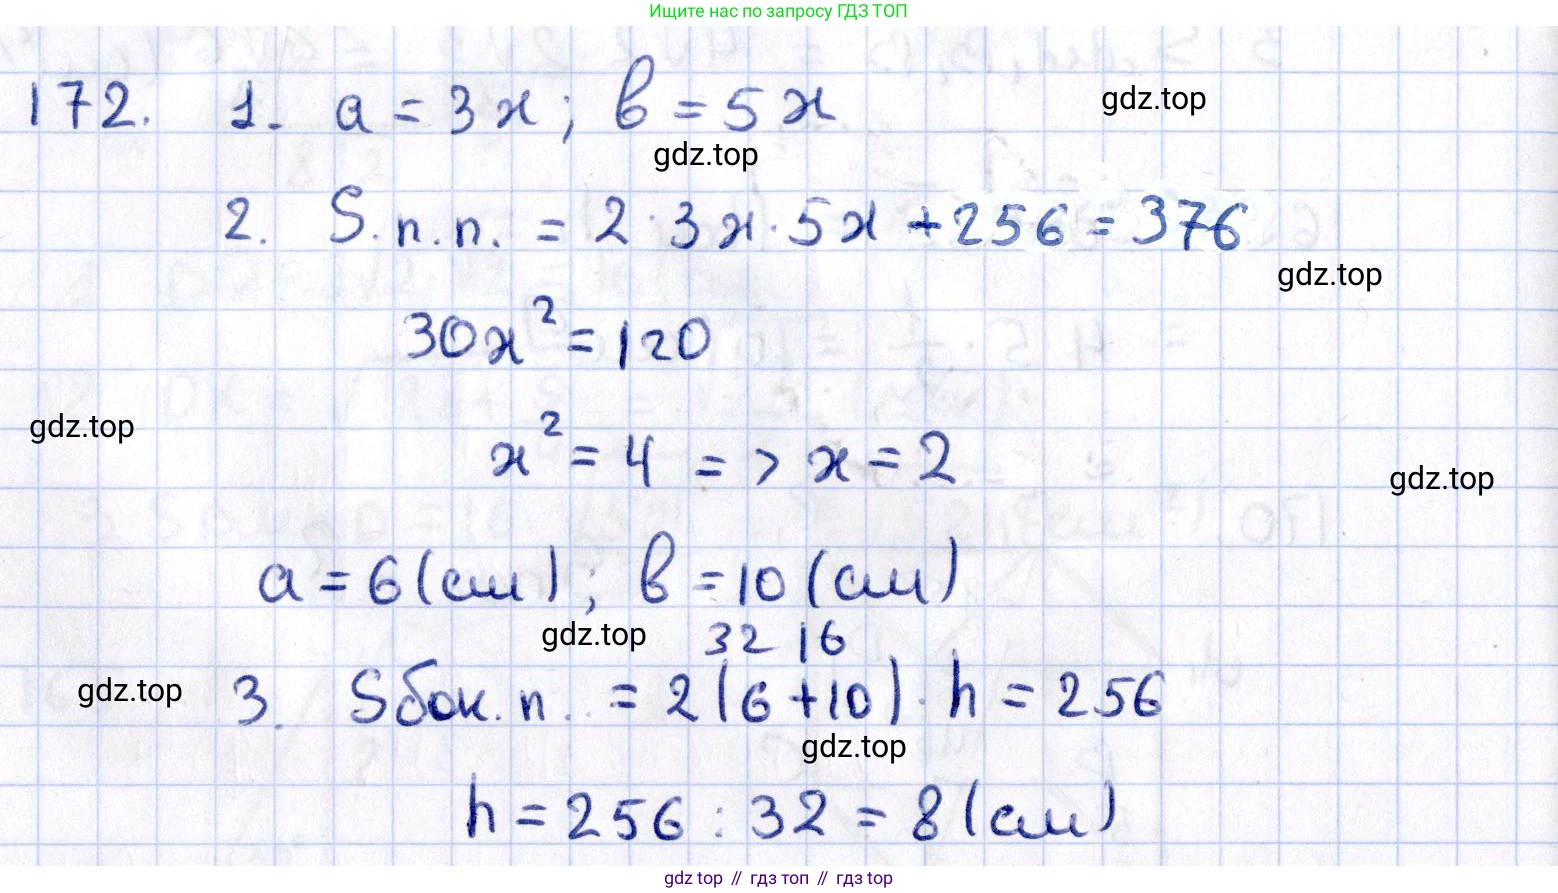 Ищите нас по запросу ГДЗ ТОП
172. 1. a = 3x; b = 5x
gdz.top
gdz.top
2. S п.п. = 2 · 3x · 5x + 256 = 376
gdz.top
30x² = 120
gdz.top
x² = 4 => x = 2
gdz.top
a = 6 (см); b = 10 (см)
gdz.top
32 16
gdz.top
3. S бок. п. = 2(6 + 10) · h = 256
gdz.top
h = 256 : 32 = 8 (см)
gdz top // гдз топ // гдз top